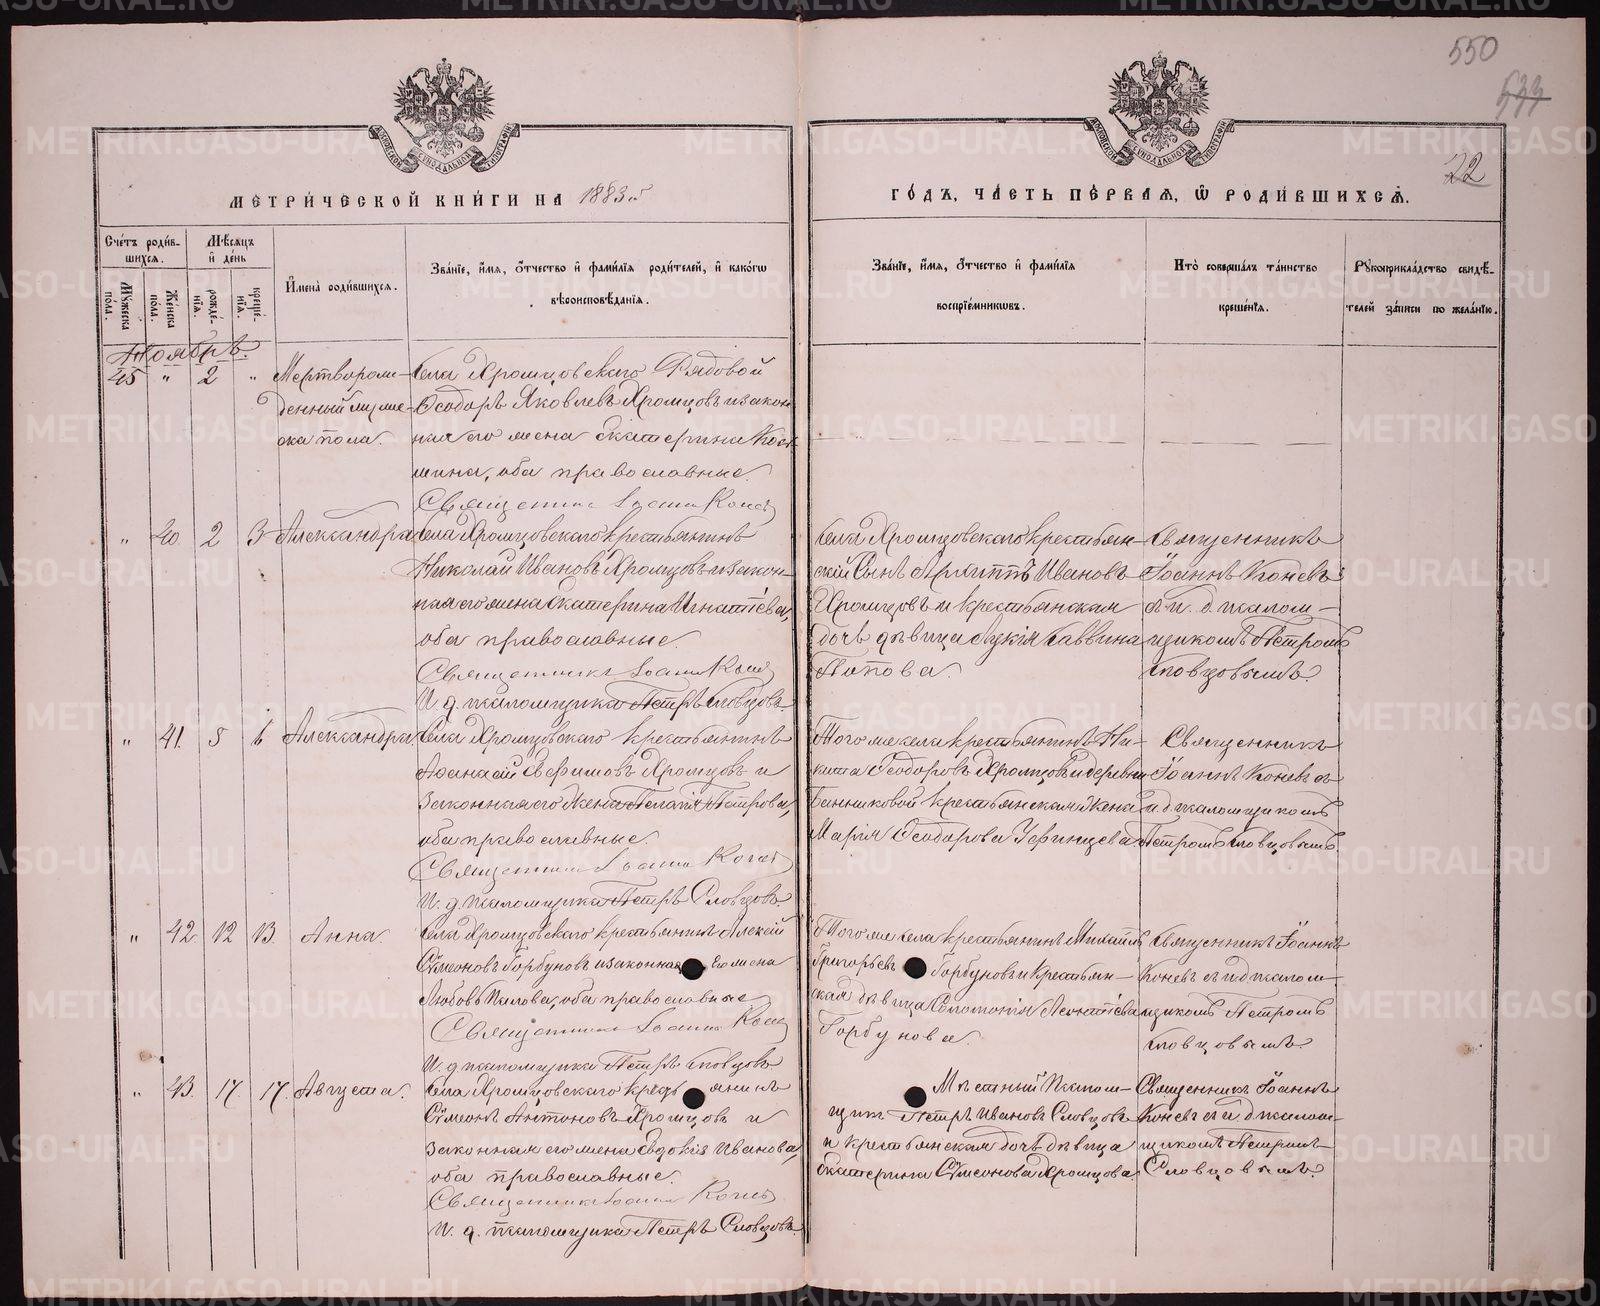 550
533
22
МЕТРИ́ЧЕСКОЙ КНИ́ГИ НА 1883й
ГО́ДЪ, ЧА́СТЬ ПЕ́РВАЯ, Ѿ РОДИ́ВШИХСЯ.
Сче́тъ роди́в-
шихся.
Мѣ́сяцъ
и де́нь
Му́жеска
по́ла.
Же́нска
по́ла.
рожде́-
нїя.
креще́-
нїя.
И́мена роди́вшихся.
Зва́нїе, и́мя, ѻ́тчество и фами́лїя роди́телей, и како́гѡ
вѣроисповѣ́данїя.
Зва́нїе, и́мя, ѻ́тчество и фами́лїя
воспрїе́мниковъ.
Кто̀ соверша́лъ та́инство
креще́нїя.
Рꙋкоприкла́дство свидѣ́-
телей за́писи по жела́нїю.
Ноябрь.
45 " 2 "
Мертворож-
денный муже-
ска пола.
Села Хромцовскаго Рядовой
Ѳеодоръ Яковлевъ Хромцовъ и закон-
ная его жена Екатерина
оба православные.
Священникъ Іоаннъ Коневъ
" 40. 2 3 Александра
Села Хромцовскаго крестьянинъ
Николай Ивановъ Хромцовъ и закон-
ная его жена Екатерина Игнатіева,
оба православные.
Священникъ Іоаннъ Коневъ
И. д. псаломщика Петръ Словцовъ
Села Хромцовскаго крестьян-
скій сынъ Архиппъ Ивановъ
Хромцовъ и крестьянская
дочь дѣвица Саввина
Попова.
Священникъ
Іоаннъ Коневъ
съ и. д. псалом-
щикомъ Петромъ
Словцовымъ.
" 41. 5 6 Александра
Села Хромцовскаго крестьянинъ
Аѳанасій Евфимовъ Хромцовъ и
законная его жена Пелагія Петрова,
оба православные.
Священникъ Іоаннъ Коневъ
И. д. псаломщика Петръ Словцовъ
Того же села крестьянинъ Ни-
кита Ѳеодоровъ Хромцовъ и деревни
Банниковой крестьянская жена
Марія Ѳеодорова Уфинцева
Священникъ
Іоаннъ Коневъ съ
и. д. псаломщикомъ
Петромъ Словцовымъ.
" 42. 12 13. Анна.
Села Хромцовскаго крестьянинъ Алексій
Сѵмеоновъ Горбуновъ и законная его жена
Любовь оба православные.
Священникъ Іоаннъ Коневъ
И. д. псаломщика Петръ Словцовъ
Того же села крестьянинъ Михаилъ
Григорьевъ Горбуновъ и крестьян-
ская дѣвица Соломонія Леонтіева
Горбунова.
Священникъ Іоаннъ
Коневъ съ и. д. псалом-
щикомъ Петромъ
Словцовымъ.
" 43. 17. 17. Августа.
Села Хромцовскаго крестьянинъ
Сѵмеонъ Антоновъ Хромцовъ и
законная его жена Евдокія Иванова,
оба православные.
Священникъ Іоаннъ Коневъ
И. д. псаломщика Петръ Словцовъ.
Мѣстный псалом-
щикъ Петръ Ивановъ Словцовъ
и крестьянская дочь дѣвица
Екатерина Сѵмеонова Хромцова
Священникъ Іоаннъ
Коневъ съ и. д. псалом-
щикомъ Петромъ
Словцовымъ.